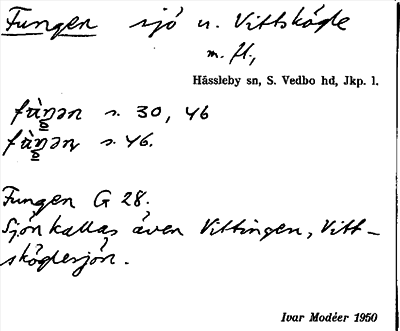 Fungen sjö n. Vittskögle
m. fl.,
Hässleby sn, S. Vedbo hd, Jkp. l.
s. 30, 46
s. 46.
Fungen G 28.
Sjön kallas även Vittingen, Vitt-
sköglesjön.
Ivar Modéer 1950